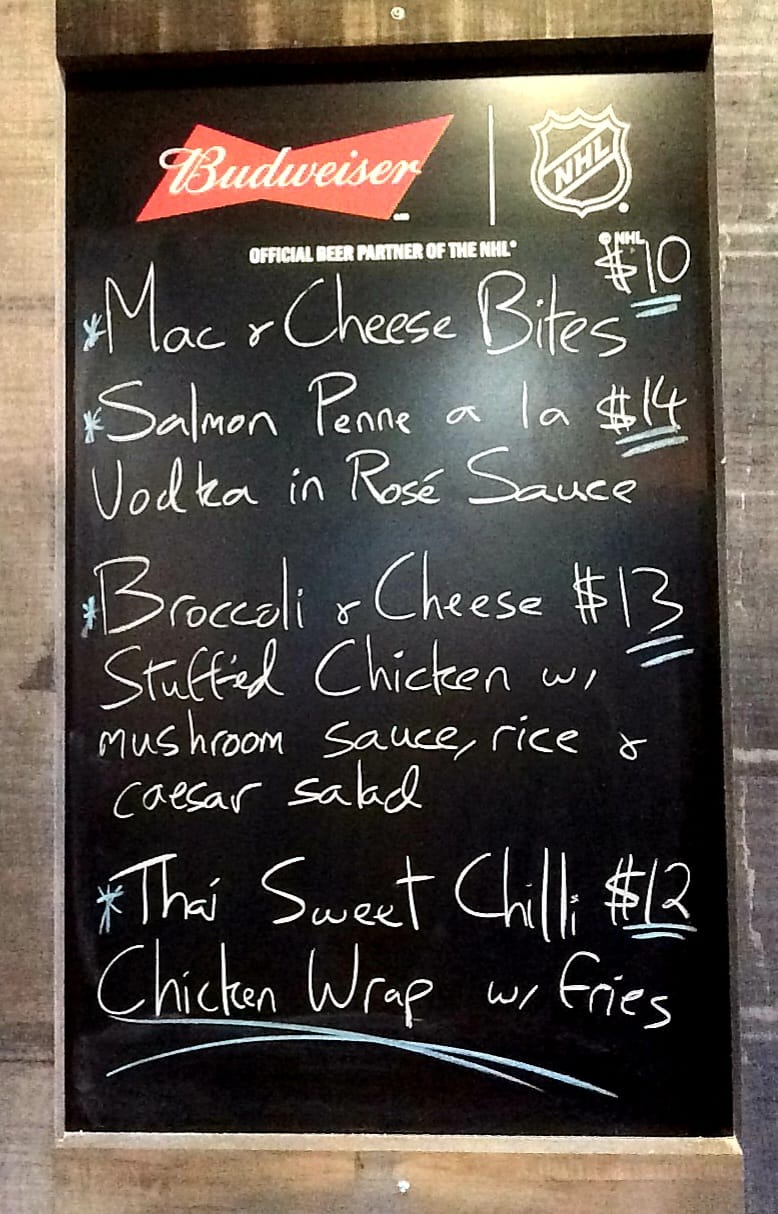 Budweiser
NHL
OFFICIAL BEER PARTNER OF THE NHL®
© NHL
$10
*Mac & Cheese Bites
*Salmon Penne a la $14
Vodka in Rosé Sauce
*Broccoli & Cheese $13
Stuffed Chicken w/
mushroom sauce, rice &
caesar salad
*Thai Sweet Chilli $12
Chicken Wrap w/ fries